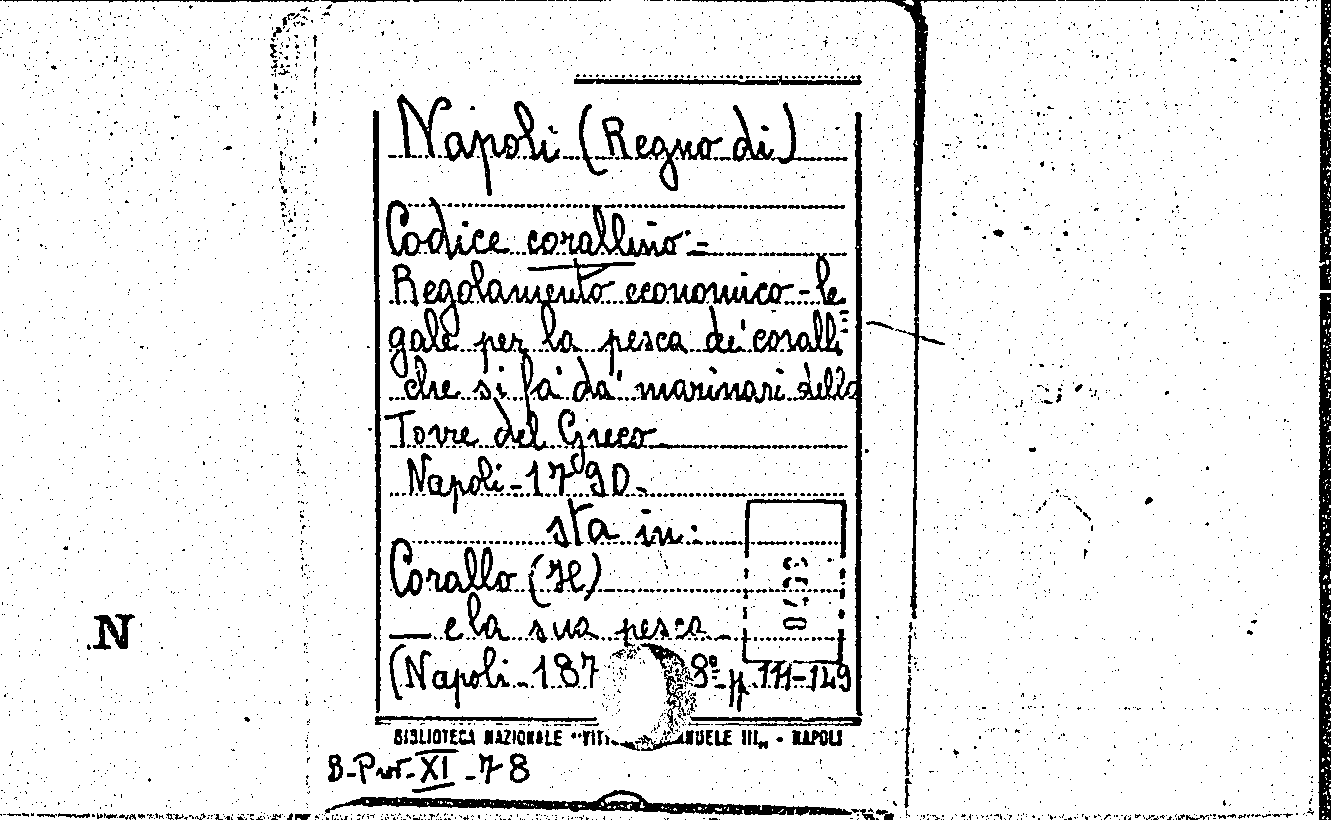 Napoli (Regno di)
Codice corallino =
Regolamento economico-le
gale per la pesca de' coralli
che si fa da' marinari della
Torre del Greco
Napoli - 1790 -
sta in:
Corallo (Il)
— e la sua pesca -
(Napoli - 187 8º - pp. 111-149
BIBLIOTECA NAZIONALE "VITT ANUELE III„ - NAPOLI
B. Prov. XI - 78
N